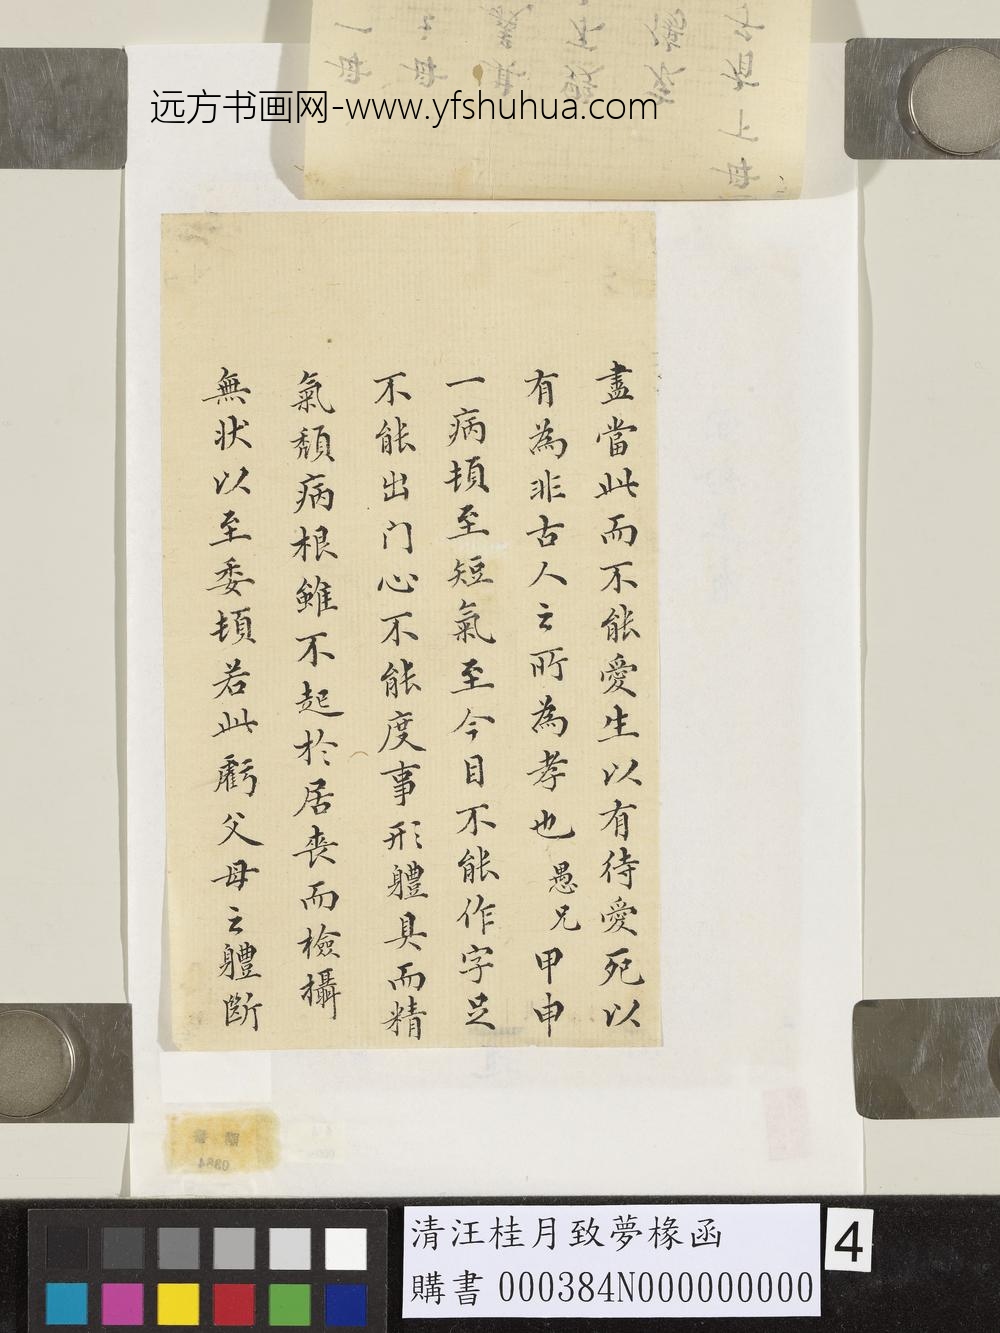 远方书画网-www.yfshuhua.com
盡當此而不能愛生以有待愛死以
有為非古人之所為孝也愚兄甲申
一病頓至短氣至今目不能作字足
不能出门心不能度事形體具而精
氣頹病根雖不起於居喪而檢攝
無狀以至委頓若此虧父母之體斷
清汪桂月致夢椽函
購書 000384N000000000
4